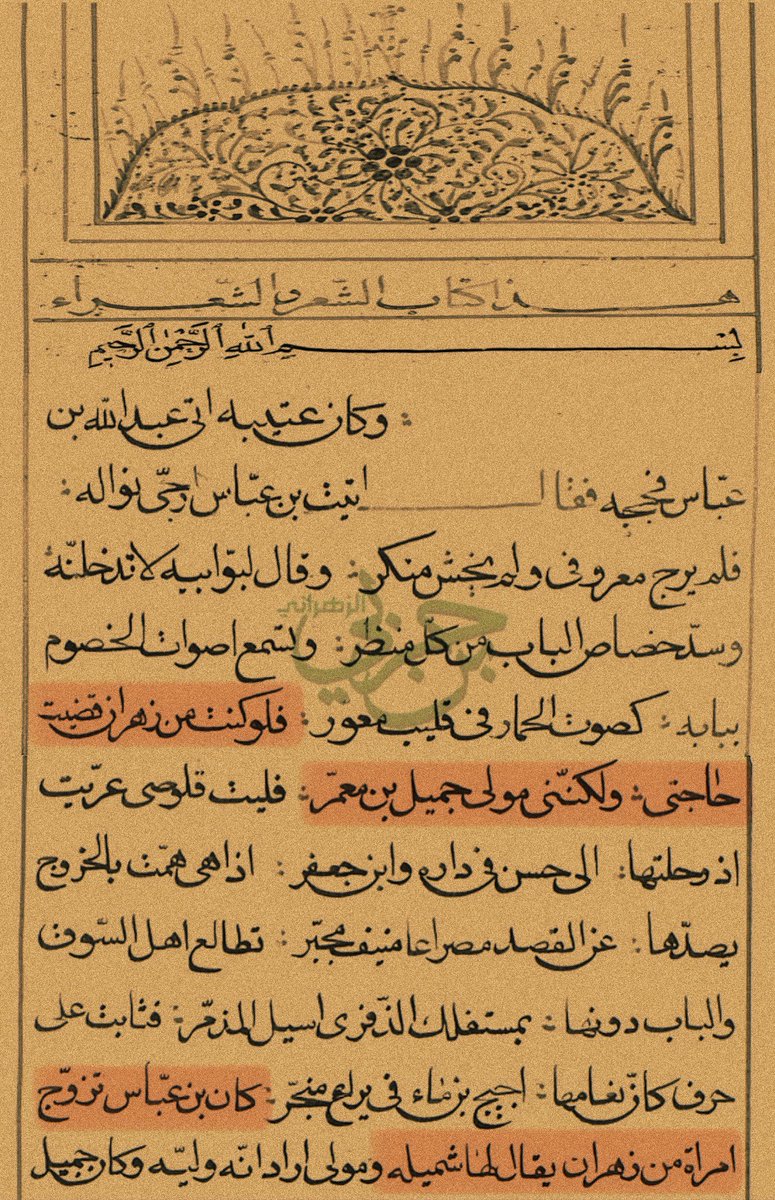 هذا كتاب الشعر والشعراء
بسم اللّٰه الرَّحْمٰنِ الرَّحِيمِ
وكان عتيبه اتى عبد اللّه بن
عبّاس فحجبه فقال اتيت بن عبّاس ارجّى نواله
فلم يرج معروفى ولم يخش منكر وقال لبوّابيه لا تدخلنّهُ
وسدّ خصاص الباب من كلّ منظر وتسمع اصوات الخصوم
ببابه كصوت الحمار فى قليب معوّر فلو كنت من زهران قضّيت
حاجتى ولكنّنى مولى جميل بن معمّر فليت قلوصى عرّيت
اذ رحلتها الى حسن فى داره وابن جعفر اذا هى همّت بالخروج
يصدّها عن القصد مصراعا منيف مجيّر تطالع اهل السّوق
والباب دونها بمستفلك الذّفرى اسيل المذمّر فثابت على
حرف كانّ بغامها اجيج بن ماء فى يراع منجّر كان بن عبّاس تزوّج
امراة من زهران يقال لها شميله ومولى اراد انّه وليّه وكان جميل
جن زفي
الزهراني